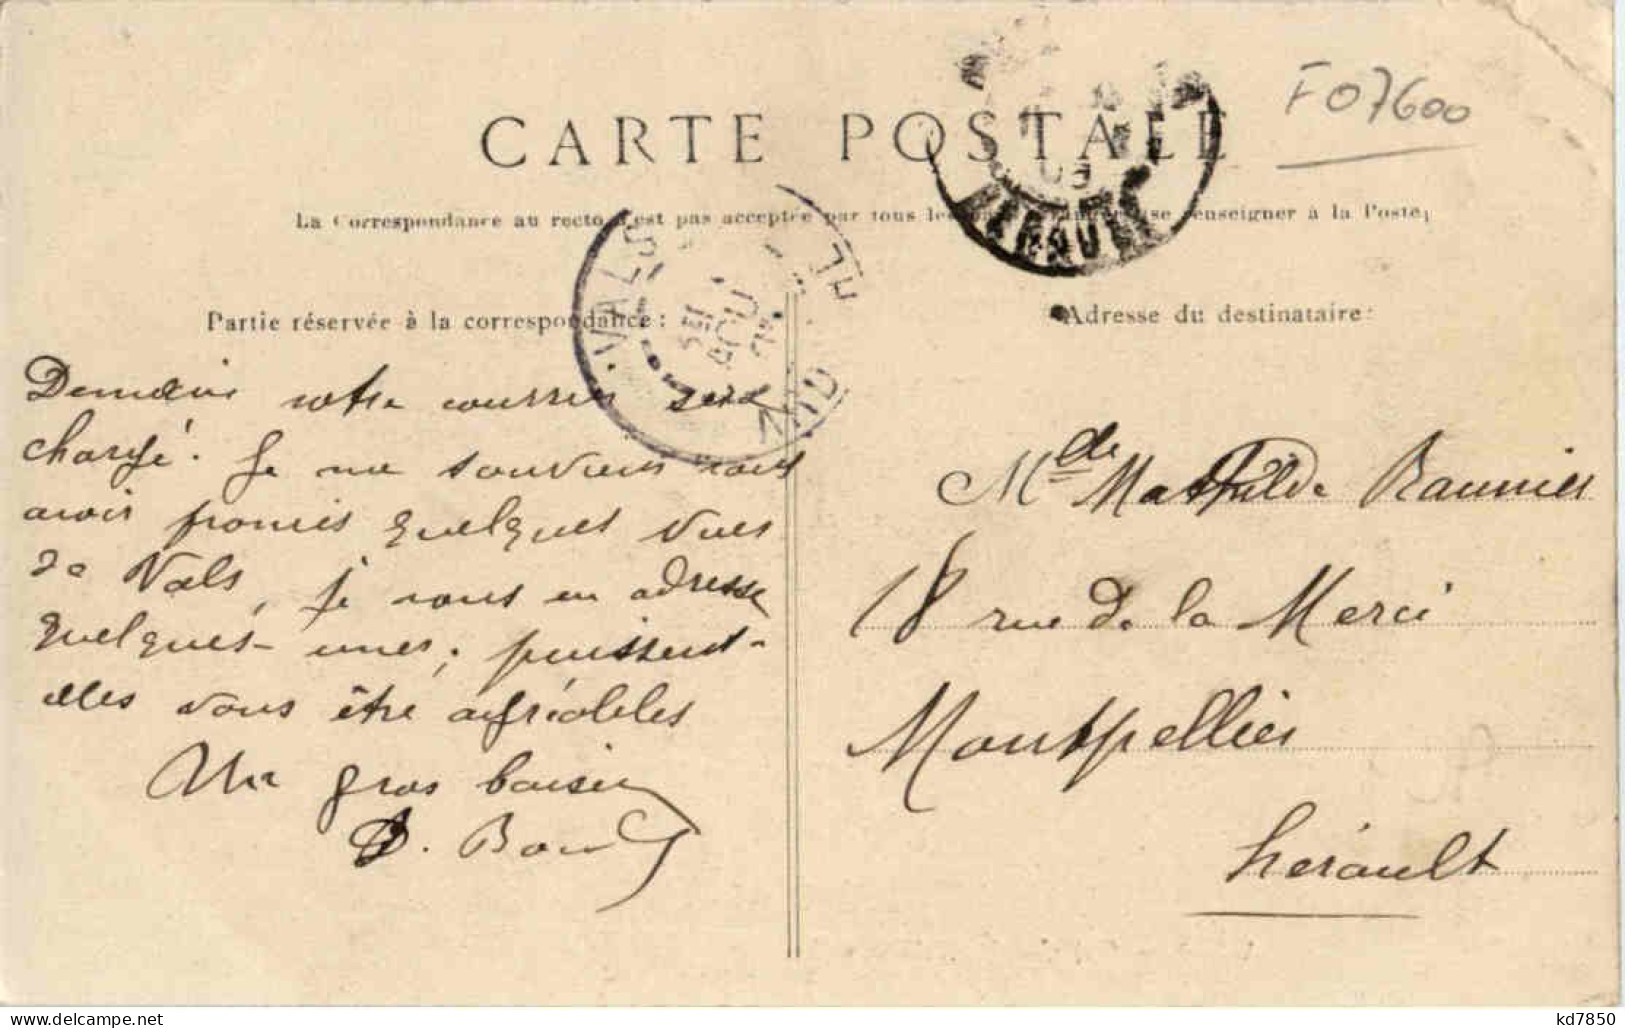 F07600
CARTE POSTALE
La Correspondance au recto n'est pas acceptée par tous les renseigner à la Poste;
HERAULT
09
VALS
AOU
Partie réservée à la correspondance:
Adresse du destinataire:
Demain votre courrier sera
chargé. Je me souviens vous
avoir promis quelques vues
de Vals, je vous en adresse
quelques-unes; puissent-
elles vous être agréables
Un gros baiser
Mlle Mathilde Raunier
18 rue de la Merci
Montpellier
Hérault
www.delcampe.net
kd7850